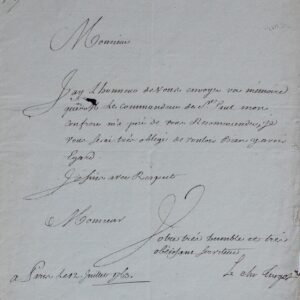 Monsieur
J'ay L'honneur de Vous envoyer un memoire
que Le commandeur de St Paul mon
confrere m'a prié de vous Recommender, je
vous serai trés obligé de vouloir bien y avoir
Egard
Je suis avec Respect
Monsieur
Votre trés humble et trés
obéissant serviteur
a Paris Le 12 Juillet 1763
Le chr Turgot